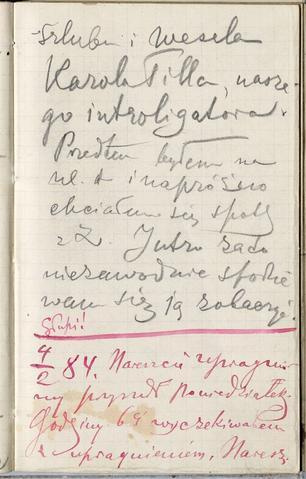 ślubu i wesela
Karola Tilla, nasze-
go introligatora.
Przedtem byłem na
ul. i napróżno
chciałem się spotk
z Z. Jutro zato
niezawodnie spodzie
wam się ją zobaczyć.
głupi!
4/2 84. Nareszcie upragnio
ny przyszedł Poniedziałek.
Godziny 6ej wyczekiwałem
z upragnieniem. Naresz-